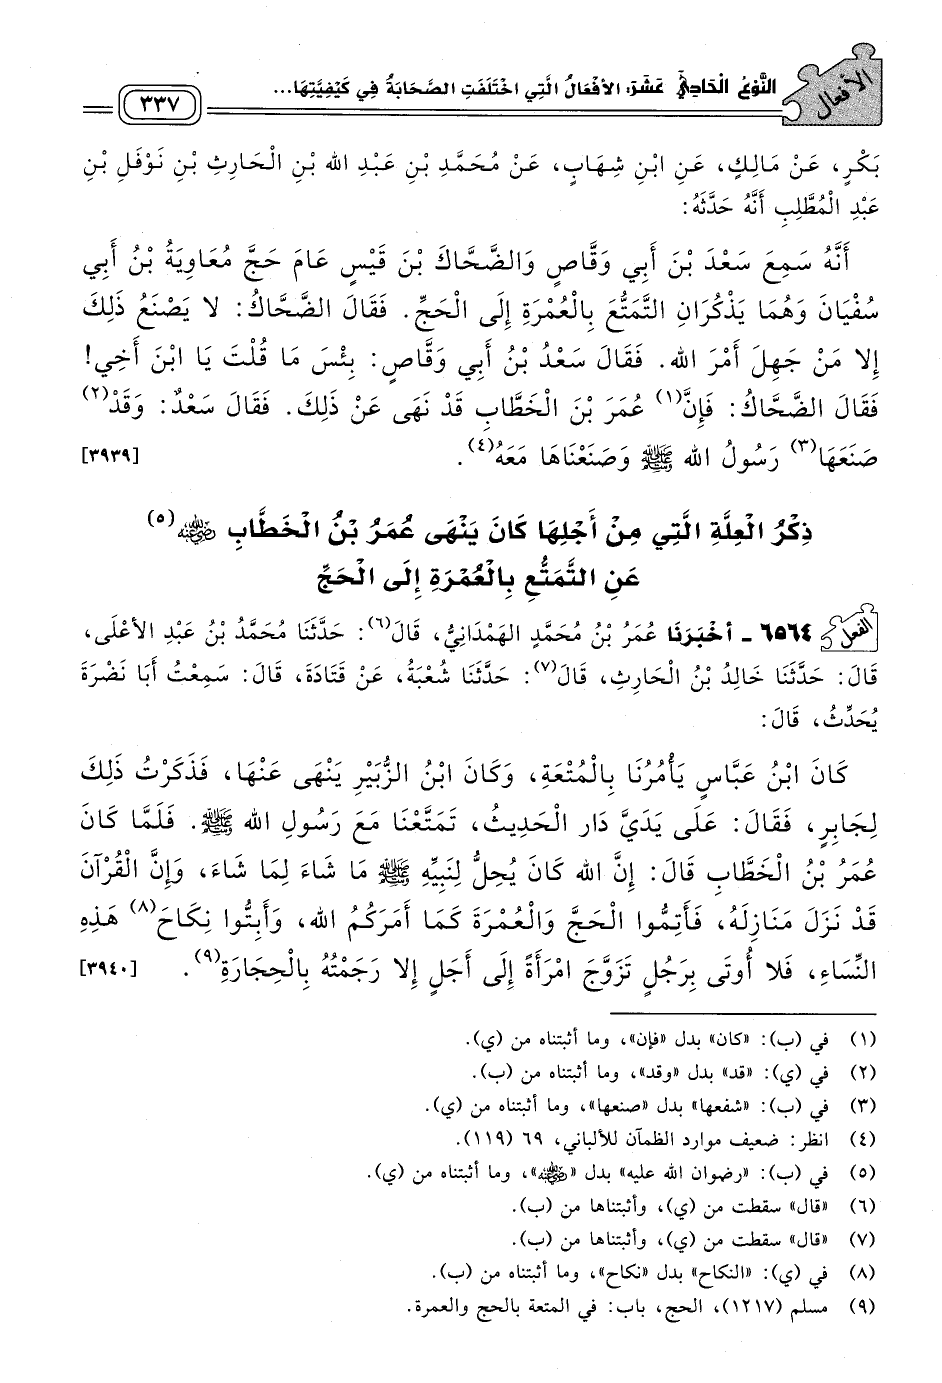 الأفعال
النَّوْعُ الْحَادِيَ عَشَرَ: الأَفْعَالُ الَّتِي اخْتَلَفَتِ الصَّحَابَةُ فِي كَيْفِيَّتِهَا...
٣٣٧
بَكْرٍ، عَنْ مَالِكٍ، عَنِ ابْنِ شِهَابٍ، عَنْ مُحَمَّدِ بْنِ عَبْدِ الله بْنِ الْحَارِثِ بْنِ نَوْفَلِ بْنِ
عَبْدِ الْمُطَّلِبِ أَنَّهُ حَدَّثَهُ:
أَنَّهُ سَمِعَ سَعْدَ بْنَ أَبِي وَقَّاصٍ وَالضَّحَّاكَ بْنَ قَيْسٍ عَامَ حَجَّ مُعَاوِيَةُ بْنُ أَبِي
سُفْيَانَ وَهُمَا يَذْكُرَانِ التَّمَتُّعَ بِالْعُمْرَةِ إِلَى الْحَجِّ. فَقَالَ الضَّحَّاكُ: لا يَصْنَعُ ذَلِكَ
إِلا مَنْ جَهِلَ أَمْرَ الله. فَقَالَ سَعْدُ بْنُ أَبِي وَقَّاصٍ: بِئْسَ مَا قُلْتَ يَا ابْنَ أَخِي!
فَقَالَ الضَّحَّاكُ: فَإِنَّ(١) عُمَرَ بْنَ الْخَطَّابِ قَدْ نَهَى عَنْ ذَلِكَ. فَقَالَ سَعْدٌ: وَقَدْ(٢)
صَنَعَهَا(٣) رَسُولُ الله ﷺ وَصَنَعْنَاهَا مَعَهُ(٤). [٣٩٣٩]
ذِكْرُ الْعِلَّةِ الَّتِي مِنْ أَجْلِهَا كَانَ يَنْهَى عُمَرُ بْنُ الْخَطَّابِ رضي الله عنه(٥)
عَنِ التَّمَتُّعِ بِالْعُمْرَةِ إِلَى الْحَجِّ
الفعل ٦٥٦٤ - أخْبَرَنَا عُمَرُ بْنُ مُحَمَّدٍ الهَمْدَانِيُّ، قَالَ(٦): حَدَّثَنَا مُحَمَّدُ بْنُ عَبْدِ الأعْلَى،
قَالَ: حَدَّثَنَا خَالِدُ بْنُ الْحَارِثِ، قَالَ(٧): حَدَّثَنَا شُعْبَةُ، عَنْ قَتَادَةَ، قَالَ: سَمِعْتُ أَبَا نَضْرَةَ
يُحَدِّثُ، قَالَ:
كَانَ ابْنُ عَبَّاسٍ يَأْمُرُنَا بِالْمُتْعَةِ، وَكَانَ ابْنُ الزُّبَيْرِ يَنْهَى عَنْهَا، فَذَكَرْتُ ذَلِكَ
لِجَابِرٍ، فَقَالَ: عَلَى يَدَيَّ دَار الْحَدِيثُ، تَمَتَّعْنَا مَعَ رَسُولِ الله ﷺ. فَلَمَّا كَانَ
عُمَرُ بْنُ الْخَطَّابِ قَالَ: إِنَّ الله كَانَ يُحِلُّ لِنَبِيِّهِ ﷺ مَا شَاءَ لِمَا شَاءَ، وَإِنَّ الْقُرْآنَ
قَدْ نَزَلَ مَنَازِلَهُ، فَأَتِمُّوا الْحَجَّ وَالْعُمْرَةَ كَمَا أَمَرَكُمُ الله، وَأَبِتُّوا نِكَاحَ(٨) هَذِهِ
النِّسَاءِ، فَلا أُوتَى بِرَجُلٍ تَزَوَّجَ امْرَأَةً إِلَى أَجَلٍ إِلا رَجَمْتُهُ بِالْحِجَارَةِ(٩). [٣٩٤٠]
(١) في (ب): «كان» بدل «فإن»، وما أثبتناه من (ي).
(٢) في (ي): «قد» بدل «وقد»، وما أثبتناه من (ب).
(٣) في (ب): «شفعها» بدل «صنعها»، وما أثبتناه من (ي).
(٤) انظر: ضعيف موارد الظمآن للألباني، ٦٩ (١١٩).
(٥) في (ب): «رضوان الله عليه» بدل «رضي الله عنه»، وما أثبتناه من (ي).
(٦) «قال» سقطت من (ي)، وأثبتناها من (ب).
(٧) «قال» سقطت من (ي)، وأثبتناها من (ب).
(٨) في (ي): «النكاح» بدل «نكاح»، وما أثبتناه من (ب).
(٩) مسلم (١٢١٧)، الحج، باب: في المتعة بالحج والعمرة.